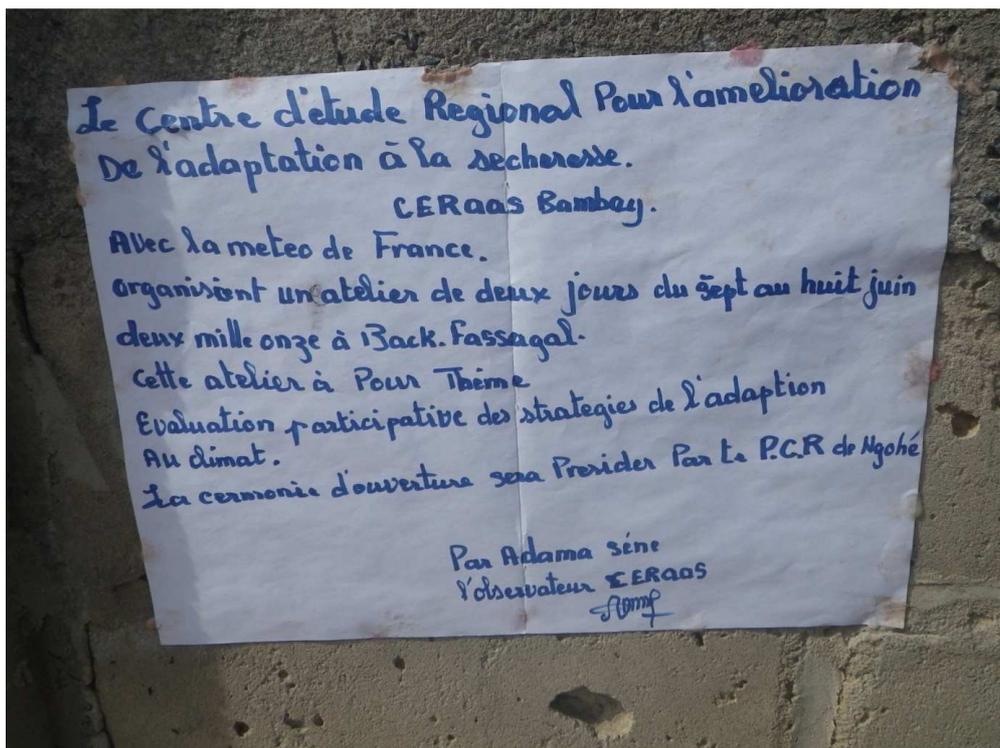 Le Centre d'etude Regional Pour l'amelioration
De l'adaptation à la secheresse.
CERaas Bambey.
AVec la meteo de France.
organisent un atelier de deux jours du sept au huit juin
deux mille onze à Back. Fassagal.
Cette atelier à Pour Thème
Evaluation participative des strategies de l'adaption
Au climat.
La cermonie d'ouverture sera Presider Par le P.C.R de Ngohé
Par Adama séne
l'observateur CERaas